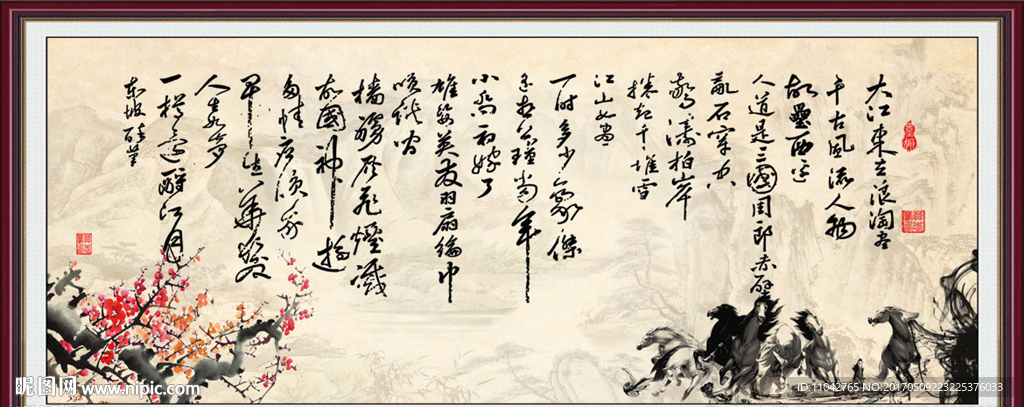 大江東去浪淘尽
千古風流人物
故壘西邊
人道是三國周郎赤壁
乱石穿空
驚濤拍岸
捲起千堆雪
江山如畫
一时多少豪傑
遥想公瑾当年
小喬初嫁了
雄姿英发羽扇綸巾
談笑间
檣艣灰飛煙滅
故國神遊
多情应笑我
早生華髮
人生如夢
一樽还酹江月
东坡醉筆
昵图网 www.nipic.com
ID:11042765 NO:20170509223225376033